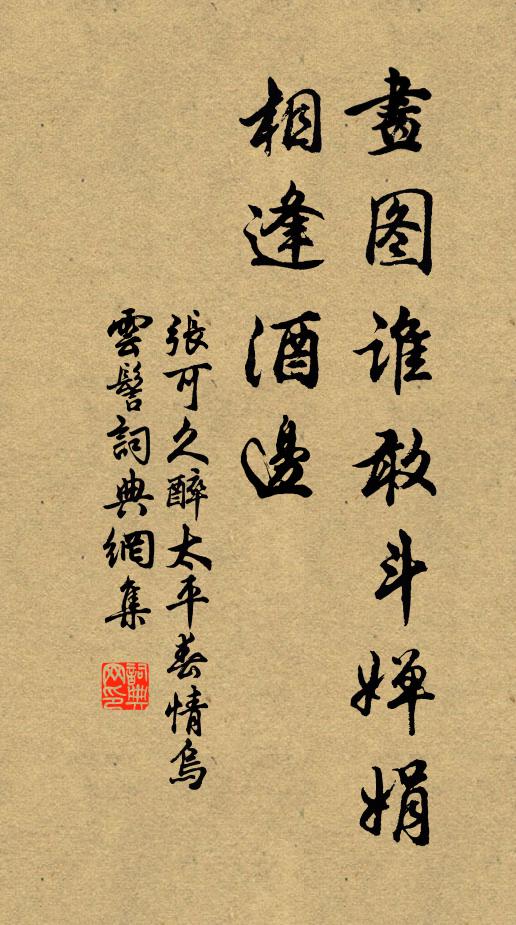 畫图谁敢斗婵娟
相逢酒邊
張可久醉太平春情烏
雲髻詞典網集
詞典
网印